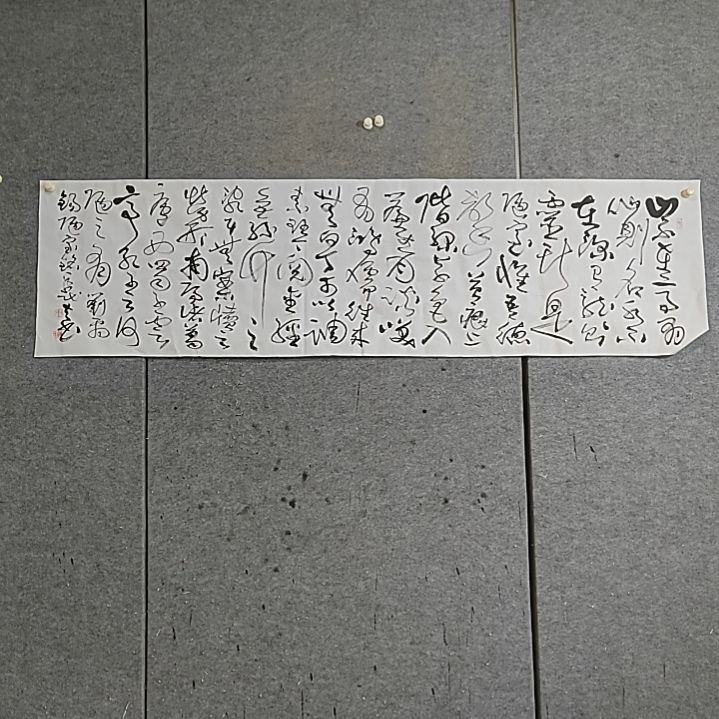 山不在高有
仙則名水不
在深有龍則
靈斯是
陋室惟吾德
馨苔痕上
階綠草色入
簾青談笑
有鴻儒往來
無白丁可以調
素琴閱金經
無絲竹之
亂耳無案牘之
勞形南陽諸葛
廬西蜀子雲
亭孔子云何
陋之有劉禹
錫陋室銘書